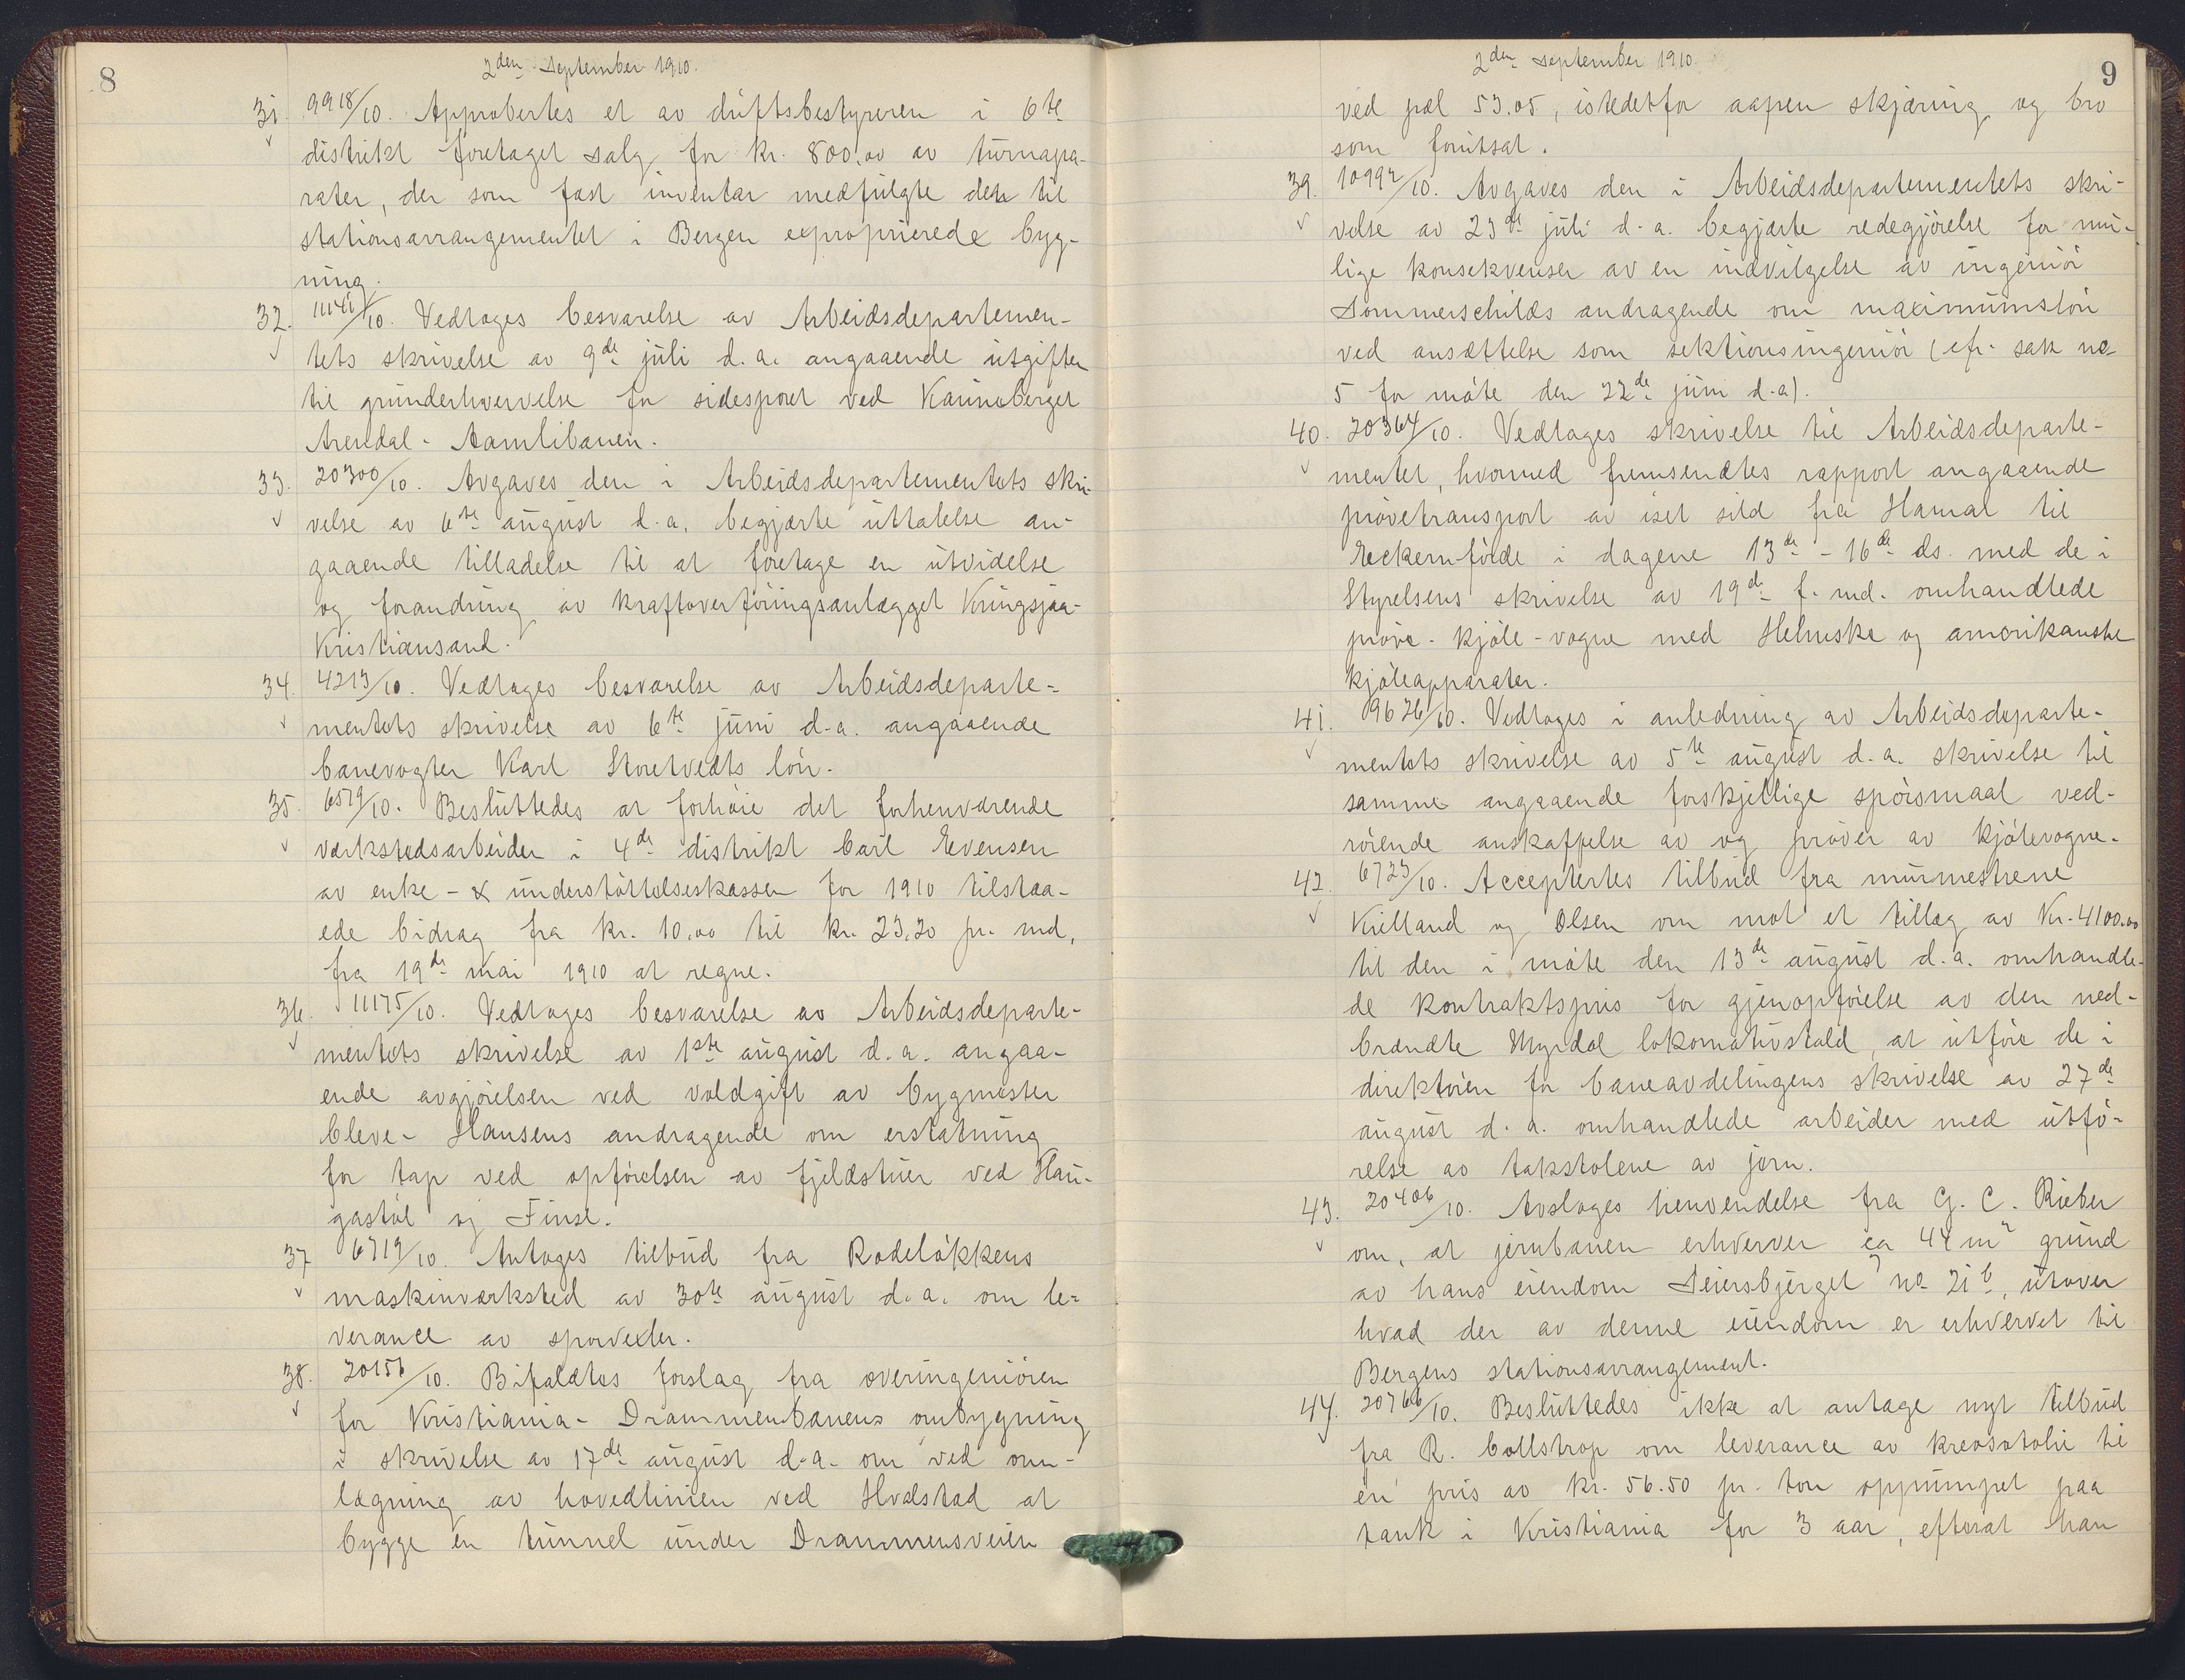 8
2den September 1910.
31. 9918/10. Approbertes et av driftsbestyreren i 6te
distrikt foretaget salg for kr. 800.00 av turnapa-
rater, der som fast inventar medfulgte den til
stationsarrangementet i Bergen exproprierede byg-
ning.
32. 11141/10. Vedtoges besvarelse av Arbeidsdepartemen-
tets skrivelse av 9de juli d.a. angaaende utgifter
til grunderhvervelse for sidesporet ved
Arendal-Aamlibanen.
33. 20300/10. Avgaves den i Arbeidsdepartementets skri-
velse av 6te august d.a. begjærte uttalelse an-
gaaende tilladelse til at foretage en utvidelse
og forandring av kraftoverføringsanlægget Kringsjaa-
Kristiansand.
34. 4213/10. Vedtoges besvarelse av Arbeidsdeparte-
mentets skrivelse av 6te juni d.a. angaaende
banevogter Karl Storetvedts løn.
35. 6579/10. Besluttedes at forhøie det forhenværende
verkstedsarbeider i 4de distrikt Carl Evensen
av enke- & understøttelseskassen for 1910 tilstaa-
ede bidrag fra kr. 10.00 til kr. 23.20 pr. md.
fra 19de mai 1910 at regne.
36. 11175/10. Vedtoges besvarelse av Arbeidsdeparte-
mentets skrivelse av 1ste august d.a. angaa-
ende avgjørelsen ved voldgift av bygmester
Cleve-Hansens andragende om erstatning
for tap ved opførelsen av fjeldstuer ved Hau-
gastøl og Finse.
37. 6719/10. Antoges tilbud fra Rodeløkkens
maskinverksted av 30te august d.a. om le-
verance av sporvexler.
38. 20156/10. Bifaldtes forslag fra overingeniøren
for Kristiania-Drammenbanens ombygning
i skrivelse av 17de august d.a. om ved om-
lægning av hovedlinien ved Hvalstad at
bygge en tunnel under Drammensveien
9
2den September 1910.
ved pæl 53.05, istedetfor aapen skjæring og bro
som forutsat.
39. 10992/10. Avgaves den i Arbeidsdepartementets skri-
velse av 23de juli d.a. begjærte redegjørelse for mu-
lige konsekvenser av en indvilgelse av ingeniør
Sommerschilds andragende om maximumsløn
ved ansættelse som sektionsingeniør (cfr. sak no
5 for møte den 22de juni d.a).
40. 20364/10. Vedtoges skrivelse til Arbeidsdeparte-
mentet, hvormed fremsendtes rapport angaaende
prøvetransport av iset sild fra Hamar til
Eckernförde i dagene 13de-16de ds. med de i
Styrelsens skrivelse av 19de f. md. omhandlede
prøve-kjøle-vogne med Helmske og amerikanske
kjøleapparater.
41. 09626/10. Vedtoges i anledning av Arbeidsdeparte-
mentets skrivelse av 5te august d.a. skrivelse til
samme angaaende forskjellige spørsmaal ved-
rørende anskaffelse av og prøver av kjølevogne.
42. 6723/10. Acceptertes tilbud fra murmestrene
Kielland og Olsen om mot et tillæg av kr. 4100.00
til den i møte den 13de august d.a. omhandle-
de kontraktspris for gjenopførelse av den ned-
brændte Myrdal lokomotivstald, at utføre de i
direktøren for baneavdelingens skrivelse av 27de
august d.a. omhandlede arbeider med utfø-
relse av takstolene av jern.
43. 20406/10. Avsloges henvendelse fra G. C. Rieber
om, at jernbanen erhverver ca 44 m2 grund
av hans eiendom Seiersbjerget no 21b, utover
hvad der av denne eiendom er erhvervet til
Bergens stationsarrangement.
44. 20766/10. Besluttedes ikke at antage nyt tilbud
fra R. Collstrop om leverance av kreosotolie til
en pris av kr. 56.50 pr. ton oppumpet paa
tank i Kristiania for 3 aar, efterat han